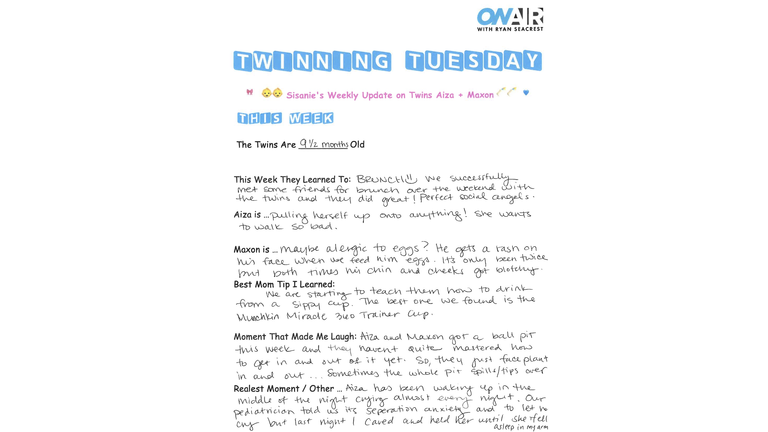 ON AIR
WITH RYAN SEACREST
TWINNING TUESDAY
Sisanie's Weekly Update on Twins Aiza + Maxon
THIS WEEK
The Twins Are 9 1/2 months Old
This Week They Learned To: BRUNCH!! We successfully
met some friends for brunch over the weekend with
the twins and they did great! Perfect social angels.
Aiza is ... pulling herself up onto anything! She wants
to walk so bad.
Maxon is ... maybe alergic to eggs? He gets a rash on
his face when we feed him eggs. It's only been twice
but both times his chin and cheeks got blotchy.
Best Mom Tip I Learned:
We are starting to teach them how to drink
from a sippy cup. The best one we found is the
Munchkin Miracle 360 Trainer Cup.
Moment That Made Me Laugh: Aiza and Maxon got a ball pit
this week and they havent quite mastered how
to get in and out of it yet. So, they just faceplant
in and out ... Sometimes the whole pit spills/tips over
Realest Moment / Other ... Aiza has been waking up in the
middle of the night crying almost every night. Our
pediatrician told us its seperation anxiety and to let her
cry but last night I caved and held her until she fell
asleep in my arm